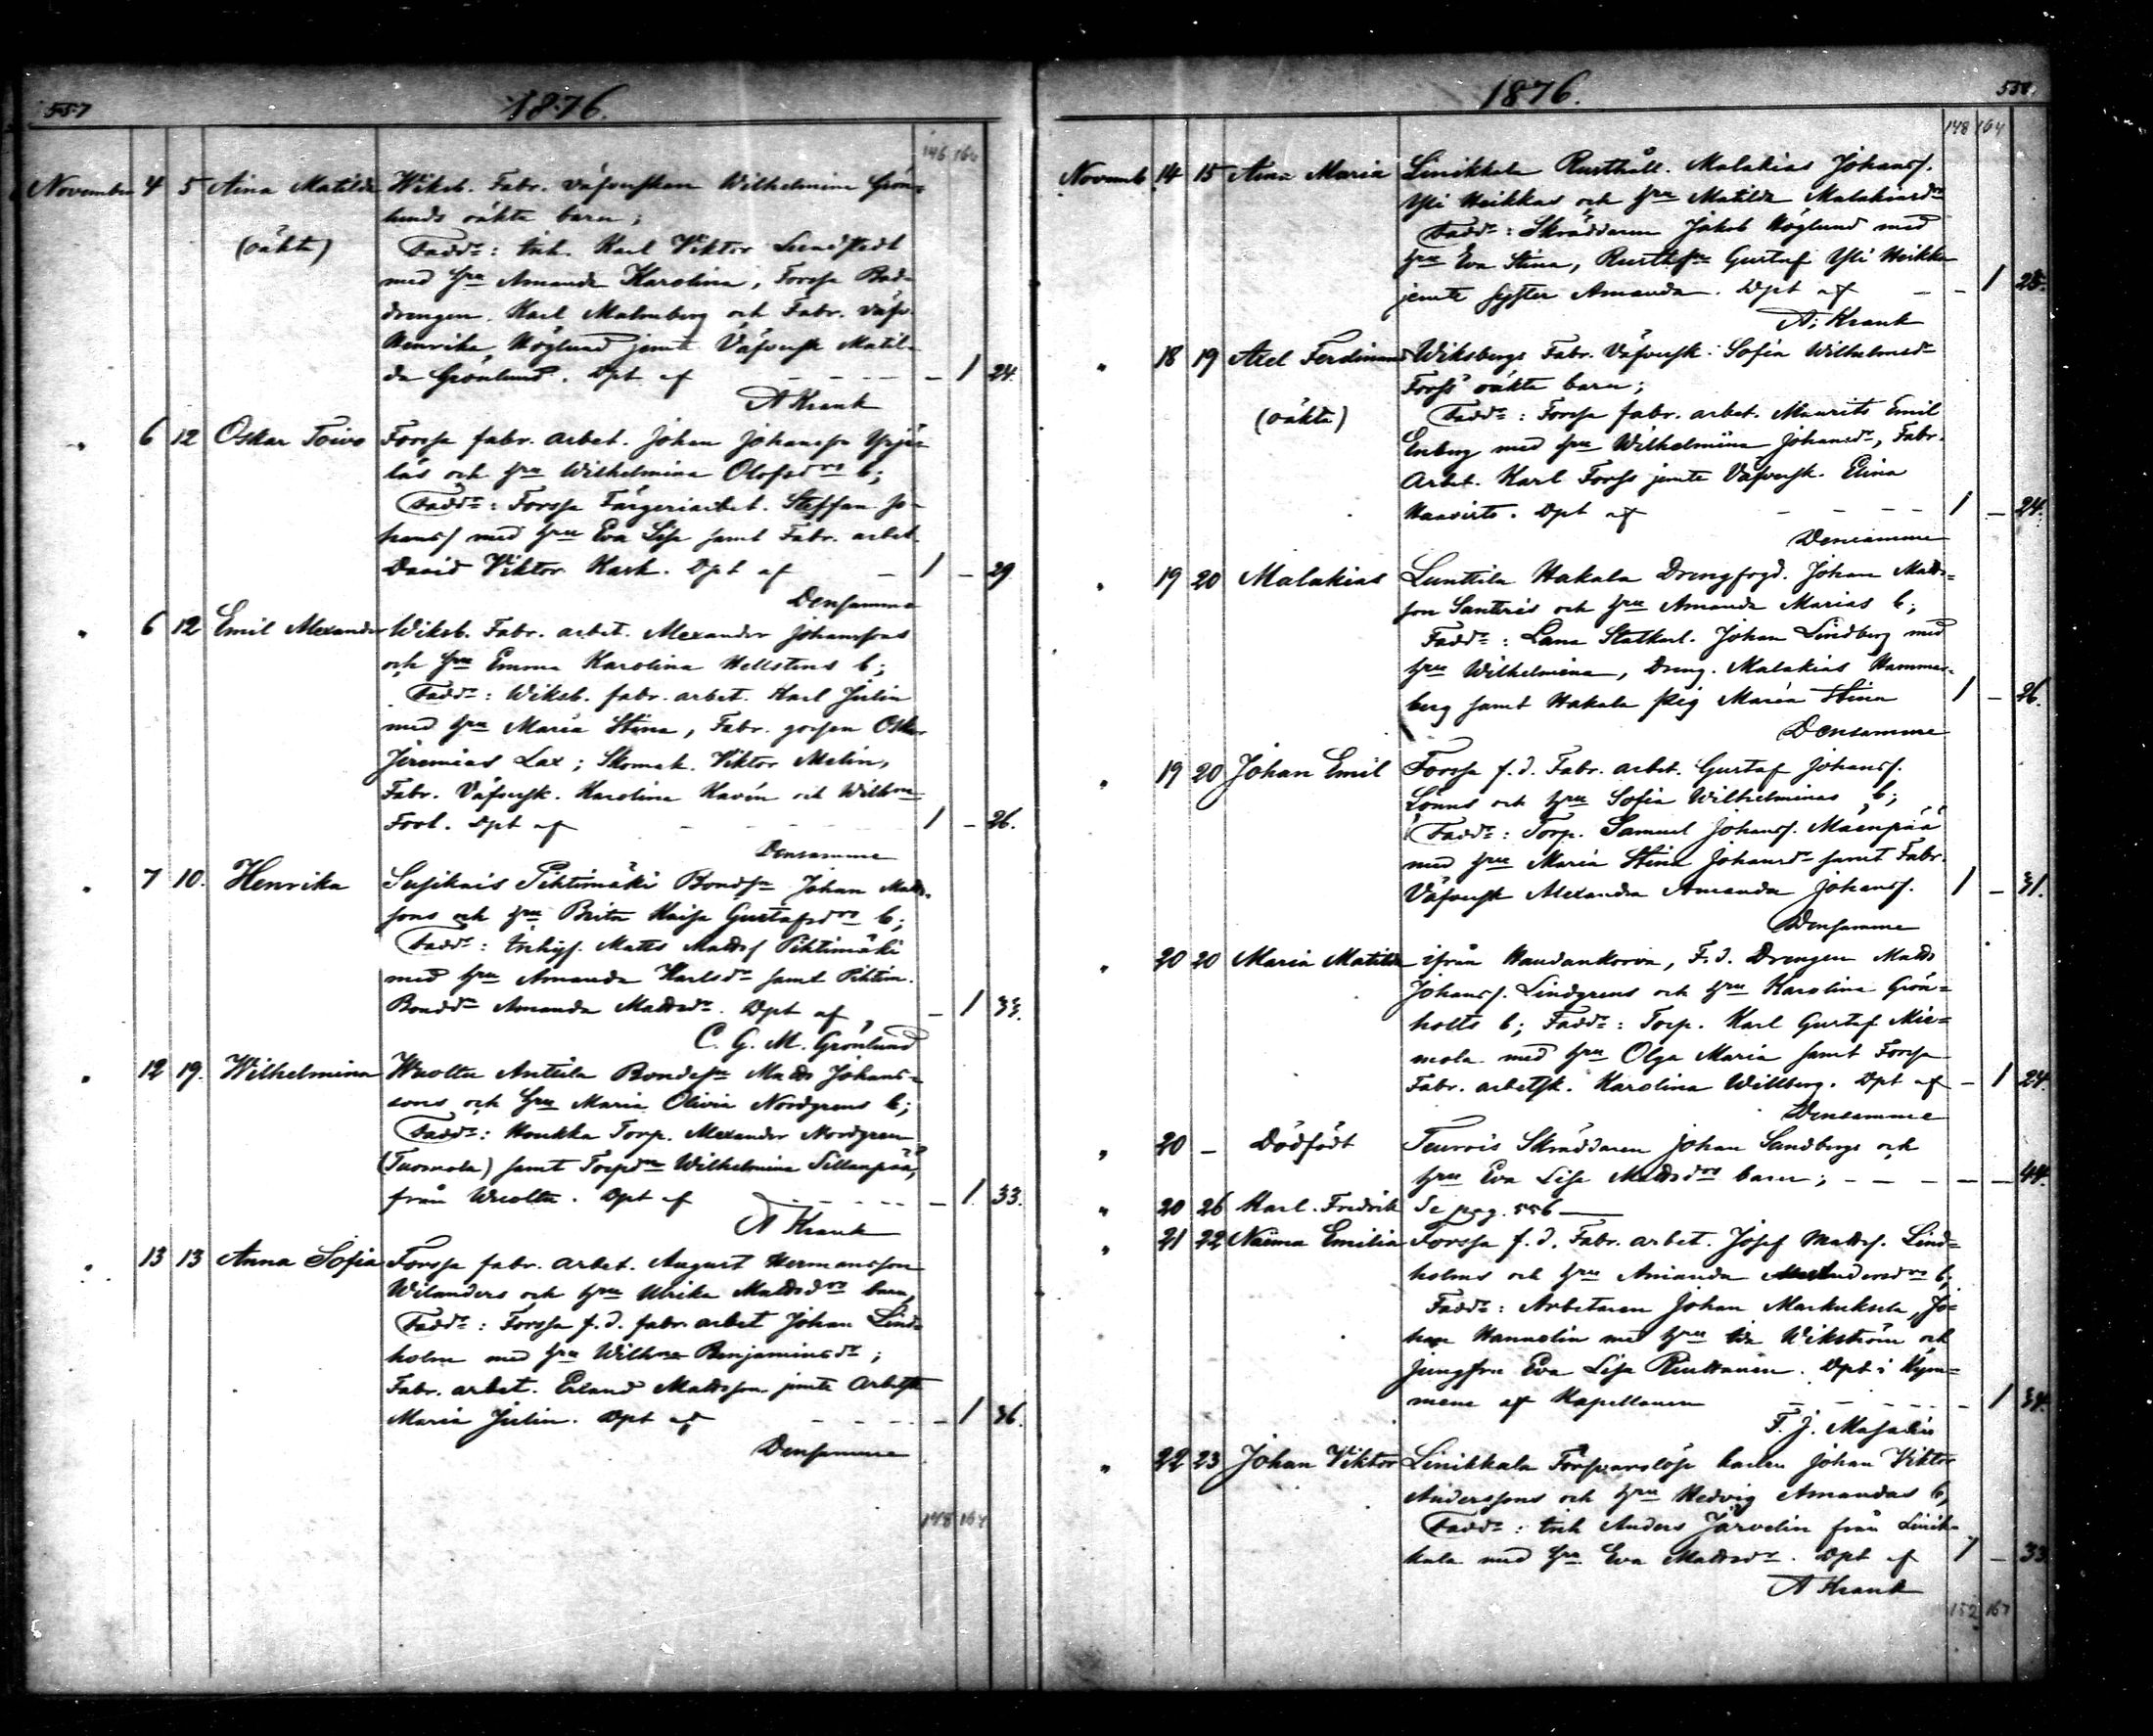 557
1876.
146 164
November 4 5 Aina Matilda Wiksb. Fabr. väfverskan Wilhelmina Grön-
lunds oäkta barn;
(oäkta) Fadd:r: Inh. Karl Viktor Lundstedt
med hu Amanda Karolina, Forssa Bod-
drengen Karl Malmberg och Fabr. väfv.
Henrika Höglund jemte Väfversk Matil-
da Grönlund. Dpt af — 1 24.
A Krank
" 6 12 Oskar Toivo Forssa fabr. arbet. Johan Johansson
läs och hu Wilhelmina Olofsdrs b;
Fadd:r: Forssa Färgeriarbet. Steffan Jo-
hanss med hu Eva Lisa samt Fabr. arbet.
David Viktor Kask. Dpt af 1 — 29
Densamme
" 6 12 Emil Alexander Wiksb. Fabr. arbet. Alexander Johanssons
och hu Emma Karolina Hellstens b;
Fadd:r: Wiksb. fabr. arbet. Karl Julin
med hu Maria Stina, Fabr. gossen Oskar
Jeremias Lax; Skomak. Viktor Melin,
Fabr. Väfversk. Karolina Kavén och Wilhna
Dpt af 1 — 26.
Densamme
" 7 10. Henrika Susikais Pihtimäki Bondsn Johan Matts-
sons och hu Brita Kaisa Gustafsdrs b;
Fadd:r: Inhys. Matts Mattss Pihtimäki
med hu Amanda Karlsdr samt Pihtim.
Bonddr Amanda Mattsdr. Dpt af — 1 33.
C. G. M. Grönlund
" 12 19. Wilhelmina Wuolta Anttila Bondesn Matts Johans-
sons och hu Maria Olivia Nordgrens b;
Fadd:r: Houkka Torp. Alexander Nordgren
(Tuomola) samt Torpdr Wilhelmina Sillanpää,
från Wuolta. Dpt af — 1 33.
A Krank
" 13 13 Anna Sofia Forssa fabr. arbet. August Hermansson
Wilanders och hu Ulrika Mattsdrs barn,
Fadd:r: Forssa f.d. fabr. arbet Johan Lind-
holm med hu Wilhna Benjaminsdr;
Fabr. arbet. Erland Mattsson jemte Arbetsk
Maria Julin. Dpt af — 1 36.
Densamme
148 164
1876.
558
148 164
Novemb. 14 15 Aina Maria Linikkala Rusthåll. Malakias Johanss.
Yli Heikkas och hu Matilda Malakiasdrs
Fadd:r: Skräddaren Jakob Höglund med
hu Eva Stina, Rusth.sn Gustaf Yli Heikka
jemte syster Amanda. Dpt af — 1 25.
A. Krank
" 18 19 Axel Ferdinand Wiksbergs Fabr. Väfversk. Sofia Wilhelmsdr
Forss' oäkta barn;
(oäkta) Fadd:r: Forssa fabr. arbet. Maurits Emil
Enberg med hu Wilhelmina Johansdr, Fabr.
Arbet. Karl Forss jemte Väfversk. Elina
Haavisto. Dpt af 1 — 24.
Densamme
" 19 20 Malakias Lunttila Hakala Drengfogd. Johan Matts-
son Santeris och hu Amanda Marias b;
Fadd:r: Lana Statkarl. Johan Lindberg med
hu Wilhelmina, Dreng. Malakias Hammar-
berg samt Hakala Pig Maria Stina 1 — 26.
Densamme
" 19 20 Johan Emil Forssa f.d. Fabr. arbet. Gustaf Johanss.
Lönns och hu Sofia Wilhelminas b;
Fadd:r: Torp. Samuel Johanss. Mäenpää
med hu Maria Stina Johansdr samt Fabr.
Väfversk Alexandra Amanda Johanss. 1 — 31.
Densamme
" 20 20 Maria Matilda ifrån Haudankorva, F.d. Drengen Matts
Johanss. Lindgrens och hu Karolina Grön-
holts b; Fadd:r: Torp. Karl Gustaf Nie-
mela med hu Olga Maria samt Forssa
Fabr. arbetsk. Karolina Willberg. Dpt af — 1 24.
Densamme
" 20 — Dödfödt Teurois Skräddaren Johan Sandbergs och
hu Eva Lisa Mattsdrs barn; — — 44.
" 20 26 Karl Fredrik Se pag. 556 —
" 21 22 Naima Emilia Forssa f.d. Fabr. arbet. Josef Mattss. Lind-
holms och hu Amanda Andersdrs b;
Fadd:r: Arbetaren Johan Markuksela, Jo-
han Hannelin med hu Ida Wikström och
jungfru Eva Lisa Ruuttanen. Dpt i Kym-
mene af Kapellanen — 1 34.
F. J. Masalin
" 22 23 Johan Viktor Linikkala Försvarslöse karlen Johan Viktor
Anderssons och hu Hedvig Amandas b,
Fadd:r: Inh Anders Järvelin från Linik-
kala med hu Eva Mattsdr. Dpt af 1 — 33
A Krank
152 167